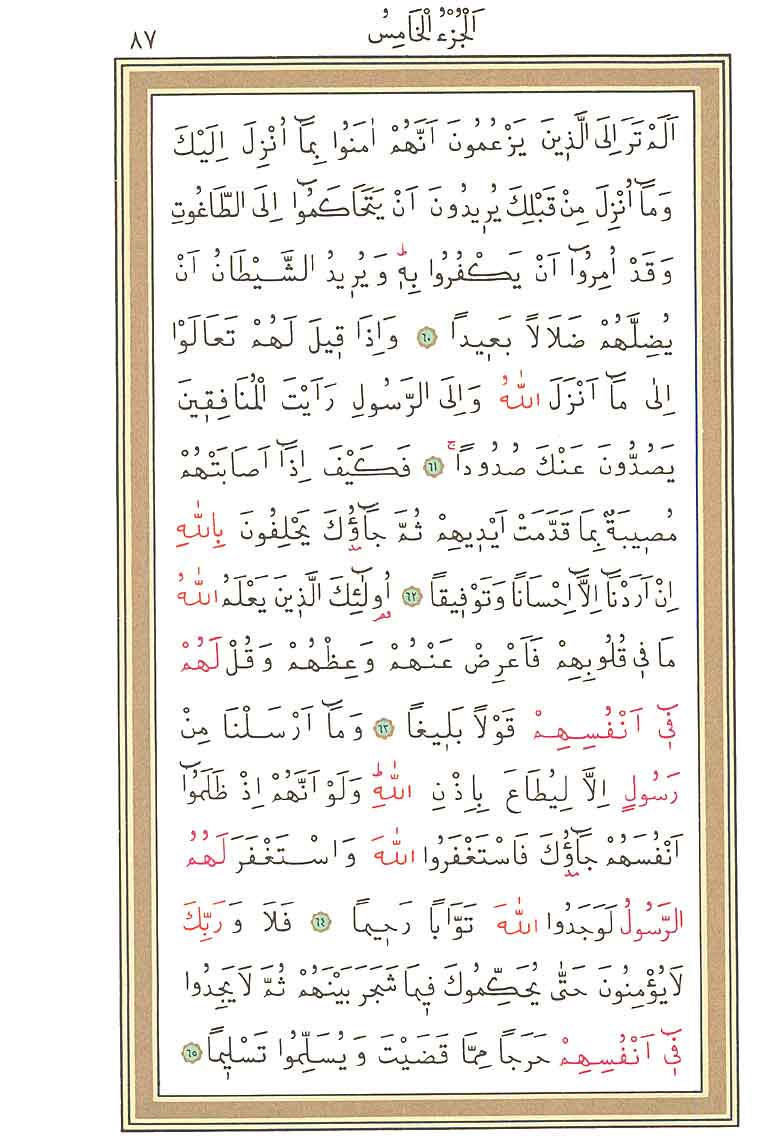 اَلْجُزْءُ الْخَامِسُ
٨٧
اَلَمْ تَرَ اِلَى الَّذٖينَ يَزْعُمُونَ اَنَّهُمْ اٰمَنُوا بِمَٓا اُنْزِلَ اِلَيْكَ
وَمَٓا اُنْزِلَ مِنْ قَبْلِكَ يُرٖيدُونَ اَنْ يَتَحَاكَمُٓوا اِلَى الطَّاغُوتِ
وَقَدْ اُمِرُٓوا اَنْ يَكْفُرُوا بِهٖؕ وَيُرٖيدُ الشَّيْطَانُ اَنْ
يُضِلَّهُمْ ضَلَالًا بَعٖيدًا ﴿٦٠﴾ وَاِذَا قٖيلَ لَهُمْ تَعَالَوْا
اِلٰى مَٓا اَنْزَلَ اللّٰهُ وَاِلَى الرَّسُولِ رَاَيْتَ الْمُنَافِقٖينَ
يَصُدُّونَ عَنْكَ صُدُودًاۚ ﴿٦١﴾ فَكَيْفَ اِذَٓا اَصَابَتْهُمْ
مُصٖيبَةٌ بِمَا قَدَّمَتْ اَيْدٖيهِمْ ثُمَّ جَٓاؤُ۫كَ يَحْلِفُونَ بِاللّٰهِ
اِنْ اَرَدْنَٓا اِلَّٓا اِحْسَانًا وَتَوْفٖيقًا ﴿٦٢﴾ اُو۬لٰٓئِكَ الَّذٖينَ يَعْلَمُ اللّٰهُ
مَا فٖى قُلُوبِهِمْ فَاَعْرِضْ عَنْهُمْ وَعِظْهُمْ وَقُلْ لَهُمْ
فٖٓى اَنْفُسِهِمْ قَوْلًا بَلٖيغًا ﴿٦٣﴾ وَمَٓا اَرْسَلْنَا مِنْ
رَسُولٍ اِلَّا لِيُطَاعَ بِاِذْنِ اللّٰهِؕ وَلَوْ اَنَّهُمْ اِذْ ظَلَمُٓوا
اَنْفُسَهُمْ جَٓاؤُ۫كَ فَاسْتَغْفَرُوا اللّٰهَ وَاسْتَغْفَرَ لَهُمُ
الرَّسُولُ لَوَجَدُوا اللّٰهَ تَوَّابًا رَحٖيمًا ﴿٦٤﴾ فَلَا وَرَبِّكَ
لَا يُؤْمِنُونَ حَتّٰى يُحَكِّمُوكَ فٖيمَا شَجَرَ بَيْنَهُمْ ثُمَّ لَا يَجِدُوا
فٖٓى اَنْفُسِهِمْ حَرَجًا مِمَّا قَضَيْتَ وَيُسَلِّمُوا تَسْلٖيمًا ﴿٦٥﴾